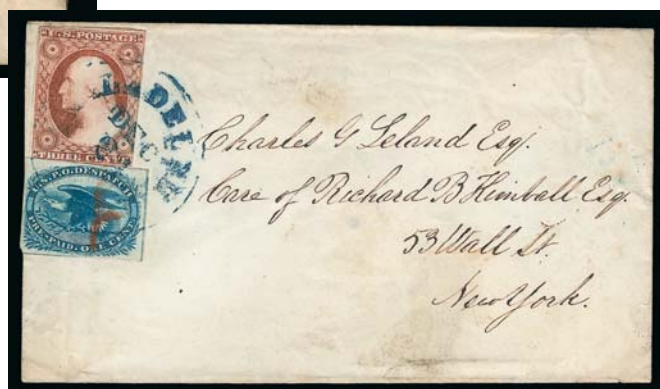 U.S. POSTAGE
THREE CENTS
LADELP
DEC
U.S.P.O. DESPATCH
PRE-PAID. ONE CENT
Charles G Leland Esq.
Care of Richard B Kimball Esq.
53 Wall St.
New York.